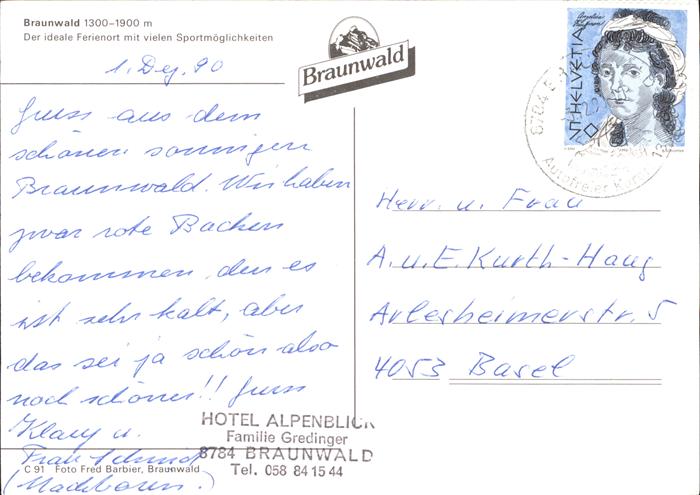 Braunwald 1300–1900 m
Der ideale Ferienort mit vielen Sportmöglichkeiten
1. Dez. 90
Braunwald
HELVETIA
50
8784
Autofreier Kurort
Gruss aus dem
schönen sonnigen
Braunwald. Wir haben
zwar rote Backen
bekommen, den es
ist sehr kalt, aber
das sei ja schön also
noch schöner!! Gruss
Klary u.
Frau Schmid
(Nachbarin.)
Herr. u. Frau
A. u. E. Kurth-Haug
Arlesheimerstr. 5
4053 Basel
HOTEL ALPENBLICK
Familie Gredinger
8784 BRAUNWALD
Tel. 058 84 15 44
C 91 Foto Fred Barbier, Braunwald